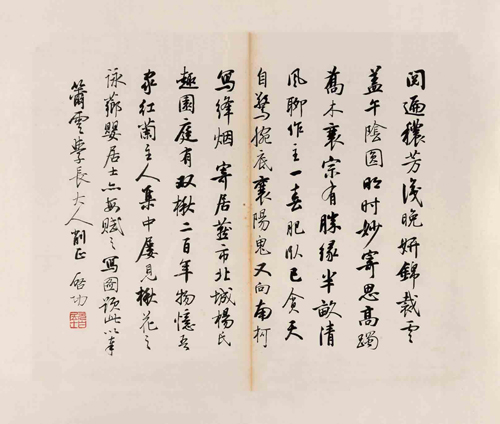 閱遍穠芳淺晚妍錦裁雲
蓋午陰圓明時妙寄思高躅
喬木衰宗有勝緣半畝清
風聊作主一春肥臥已貪天
自驚捥底襄陽鬼又向南柯
寫絳烟 寄居燕市北城楊氏
趣園庭有双楸二百年物憶吾
家紅蘭主人集中屢見楸花之
詠薌嬰居士亦每賦之寫圖題此以奉
簫雲學長大人削正 啟功